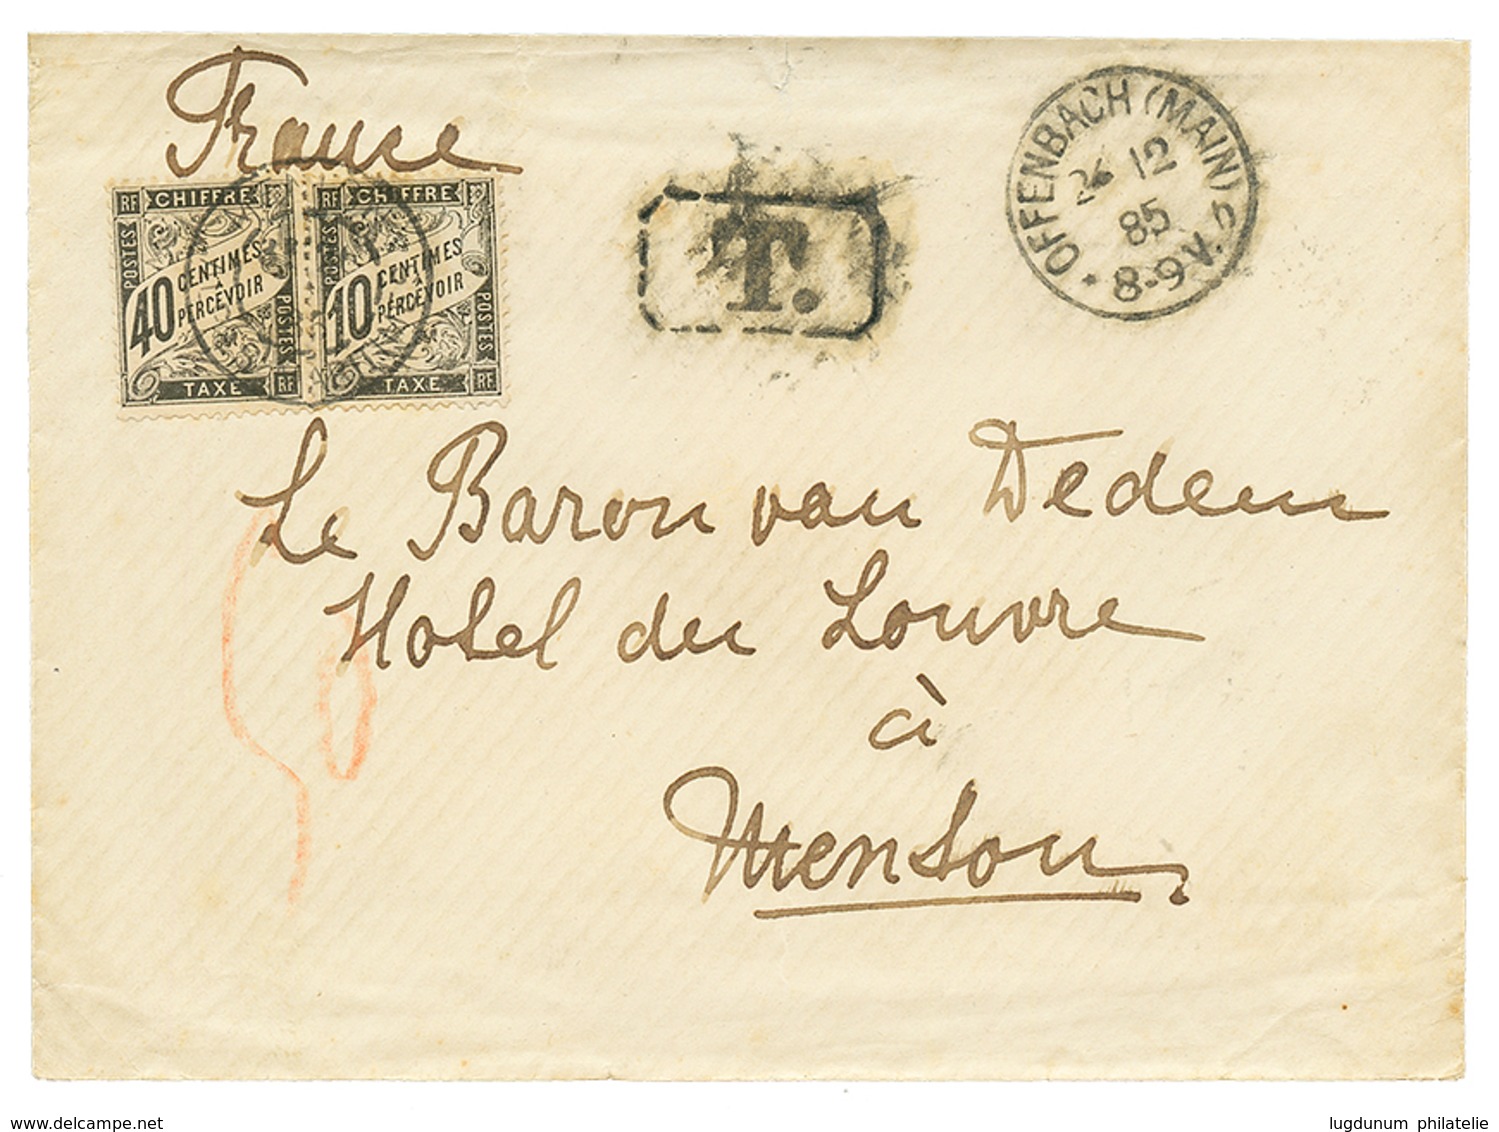 France
RF CHIFFRE
POSTES
40 CENTIMES
À
PERCEVOIR
POSTES
TAXE RF
RF CHIFFRE
POSTES
10 CENTIMES
À
PERCEVOIR
POSTES
TAXE RF
T.
OFFENBACH (MAIN)
26 12
85
* 8-9 V.
Le Baron van Dedem
Hotel du Louvre
à
Menton
www.delcampe.net
lugdunum philatelie